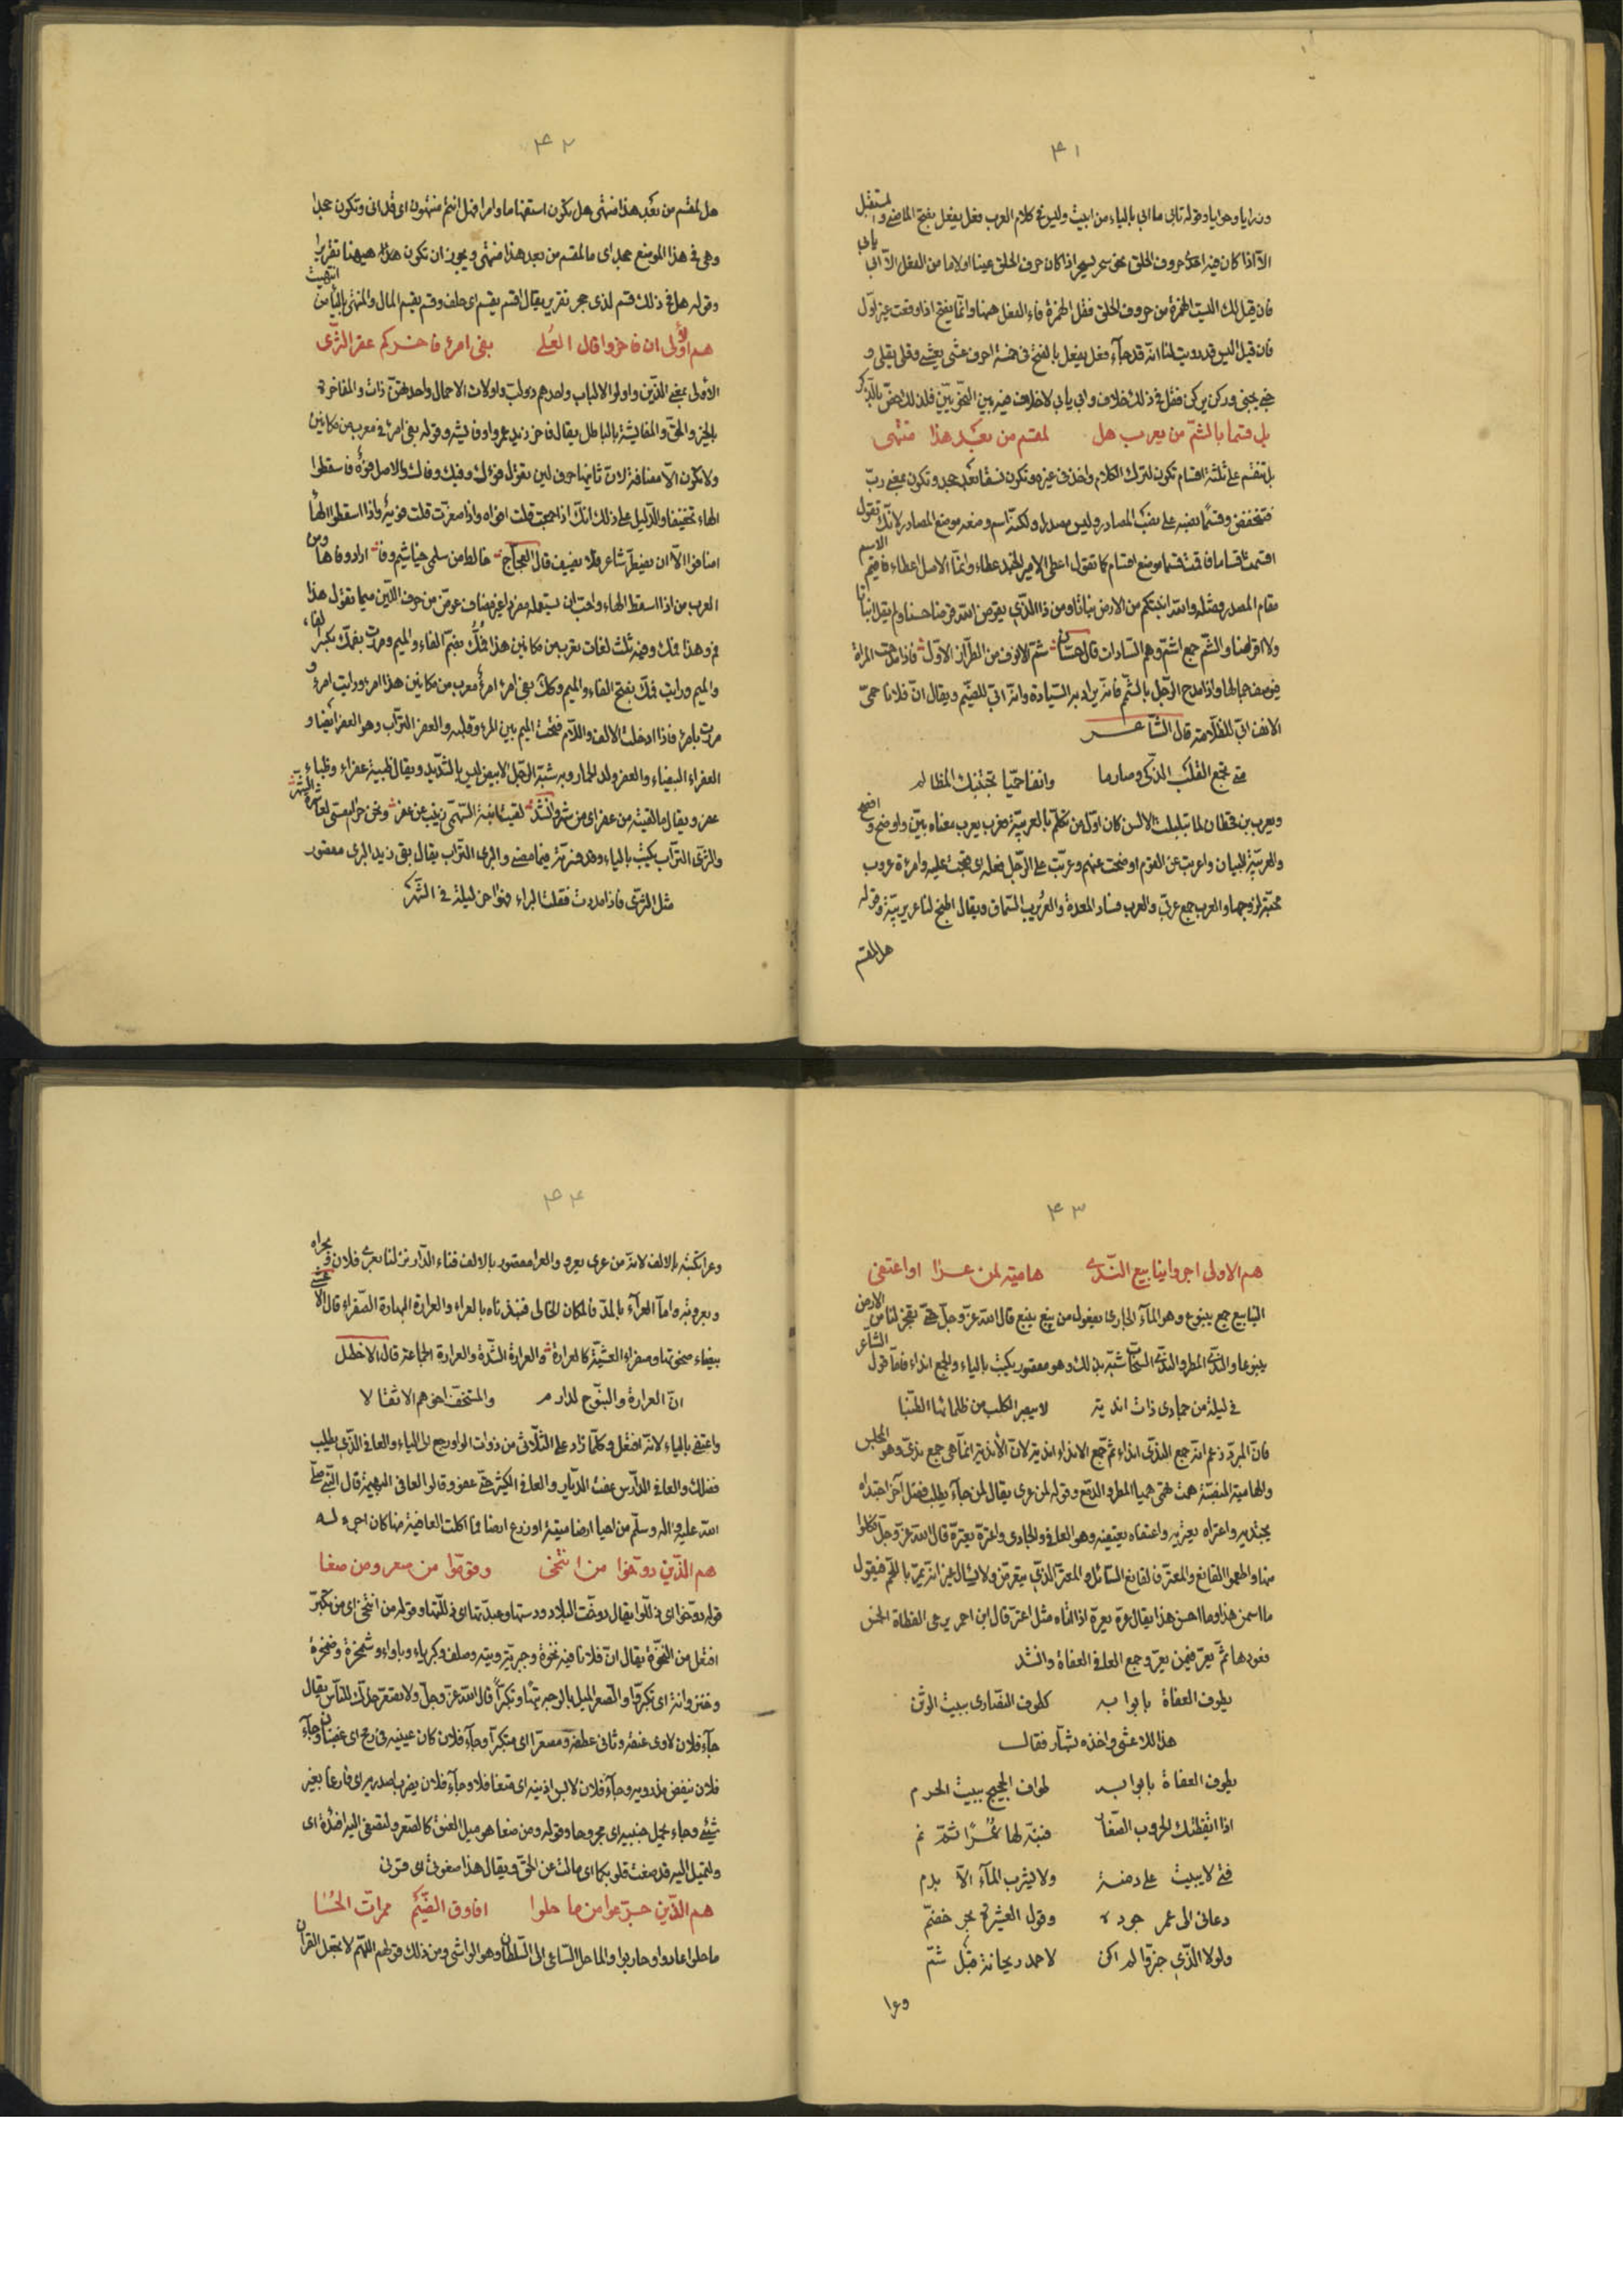 ۴۱
ودرايا وهوايا وقوله تابى ما ابى بالياء من ابيت وليس فى كلام العرب فعل يفعل بفتح الماضى والمستقبل
الّا اذا كان فيه احد حروف الحلق نحو سحر يسحر اذا كان حرف الحلق عينا او لاما من الفعل الّا ابى يابى
فان قيل لك اليست الهمزة من حروف الحلق فقل الهمزة فاء الفعل ههنا وانّما يفتح اذا وقعت غير اوّل
فان قيل اليس قد رويت لنا انّه قد جآء فعل يفعل بالفتح فى خمسة احرف عشى يعشى وقلى يقلى و
جبى يجبى وركن يركن فقل فى ذلك خلاف وابى يابى لا خلاف فيه بين النحويّين فلذلك خصّ بالذّكر
بل قسما بالشمّ من يعرب هل لمقسم من بعد هذا منتهى
بل تنقسم على ثلثة اقسام تكون لترك الكلام واخذ فى غيره وتكون نسقا بعد جحد وتكون بمعنى ربّ
فتخفض وقسمًا نصبه على المصادر وليس بمصدر ولكنّه اسم وضعه موضع المصادر لانّك تقول
اقسمت اقساما فاقمت قسما موضع اقسام كما تقول اعطى الامير الجند عطاء وانّما الاصل اعطاء فاقيم الاسم
مقام المصدر ومثله والله انبتكم من الارض نباتا ومن ذا الذّى يقرض الله قرضا حسنا ولم يقل انباتا
ولا اقراضا والشمّ جمع اشمّ وهم السّادات قال حسّان شمّ الانوف من الطراز الاوّل فاذا مدحت المراة
فيوصف جمالها واذا مدح الرّجل بالشّمم فانّه يراد به السّيادة وانّه ابىّ للضّيم ويقال انّ فلانا حمىّ
الانف ابىّ للظلامة قال الشّاعر
متى تجمع القلب الذكى وصارما وانفا حميّا تجتنبك المظالم
ويعرب بن قحطان لمّا تبلبلت الالسن كان اوّل من تكلّم بالعربيّة فعرب يعرب معناه بيّن واوضح وافصح
والعربيّة البيان واعربت عن القوم اوضحت عنهم وعرّبت على الرّجل فعله اى قبّحت عليه وامرءة عروب
محبّة لزوجها والعرب جمع عربىّ والعرب فساد المعدة والعربرب السّماق ويقال اطبخ لنا عربربيّة وقوله
هل لمقسم
۴۲
هل لمقسم من بعد هذا منتهى هل يكون استفهاما وامرا فهل انتم منتهون اى وتكون جحدا
وهى فى هذا الموضع جحد اى ما لمقسم من بعد هذا منتهى ويجوز ان تكون هل ههنا تقريرا
وقوله هل فى ذلك قسم لذى حجر تقرير يقال اقسم يقسم اى حلف وقسم يقسم المال والمنتهى بالياء من انتهيت
هم الاولى ان فاخروا قال العُلى بفى امرئ فاخركم عفر الثّرى
الاولى بمعنى الذّين واولوا الالباب واحدهم ذو لبّ واولات الاحمال واحدتهنّ ذات والمفاخرة
بالخير والحقّ والمفايشة بالباطل يقال فاخر زيد عمروا وفايشه وقوله بفى امرئ فى معرب من مكانين
ولا تكون الّا مضافة لانّ ثانيها حرف لين تقول فوك وفيك وفاك والاصل فوهٌ فاسقطوا
الهاء تخفيفا والدّليل على ذلك انّك اذا جمعت قلت افواه واذا صغّرت قلت فويه واذا اسقطوا الهاء
اضافوا الّا ان يضطرّ شاعر فلا يضيف قال العجّاج خالط من سلمى خياشيم وفا اراد وفاها ومن
العرب من اذا اسقط الهاء واحبّ ان يستعمله مفردا غير مضاف عوّض من حرف اللّين ميما تقول هذا
فم وهذا فمك وفيه ثلث لغات يعرب من مكانين هذا فُمُك بضمّ الفاء والميم ومررت بفِمِك بكسر الفاء
والميم ورايت فَمَك بفتح الفاء والميم وكذلك بفى امرئ امرؤ معرب من مكانين هذا امرؤ ورايت امرءا و
مررت بامرئ فاذا ادخلت الالف واللّام فتحت الميم بين المرء وقلبه والعفر التّراب وهو العفر ايضا و
العفراء البيضاء والعفر ولد الحمار وبه شبّه الرّجل الابيض ليس بالشّديد ويقال ظبية عفراء وظباء
عفر ويقال ما لقيته من عفر اى من شهر وانشد لقيت ابنة السّهمىّ زينب عن عفر ونحن حرام مسى عاشرة العشر
والثّرى التّراب يكتب بالياء وقد فسّرته فيما مضى والبرى التّراب يقال بفى زيد البرى مقصور
مثل الثّرى فاذا مددت فقلت البراء فهو اخر ليلة فى الشّهر
۴۳
هم الاولى اجروا ينابيع النّدى هامية لمن عرا او اعتفى
الينابيع جمع ينبوع وهو المآء الجارى يفعول من نبع ينبع قال الله عزّ وجلّ حتّى تفجر لنا من الارض
ينبوعا والنّدى المطر والنّدى السّخآء شبّه بذلك وهو مقصور يكتب بالياء والجمع انداء فامّا قول الشاعر
فى ليلة من جمادى ذات اندية لا يبصر الكلب من ظلمائها الطّنبا
فانّ المبرّد زعم انّه جمع النّدى انداء ثمّ جمع الانداء اندية لانّ الاندية انّما هى جمع ندىّ وهو المجلس
والهامية المنصبّة همت تهمى هميا المطر والدّمع وقوله لمن عرى يقال لمن جآء يطلب فضل آخر اجتداه
يجتديه واعتراه يعتريه واعتفاه يعتفيه وهو العافى والجادى واعترّه يعترّه قال الله عزّ وجلّ فكلوا
منها واطعموا القانع والمعترّ فالقانع السّائل والمعترّ الذّى يتعرّض ولا يسال غير انّه يمرّ باللّحم فيقول
ما اسمن هذا وما احسن هذا يقال عرّه يعرّه اذا اتاه مثل اعترّه قال ابن احمر يرعى القطاة الخمس
قفورها ثمّ تعرّ فيمن يعرّ وجمع العافى العفاة وانشد
يطوف العفاة بابوابه كطوف النّصارى ببيت الوثن
هذا للاعشى واخذه بشّار فقال
يطوف العفاة بابوابه لطواف الحجيج ببيت الحرم
اذا ايقظتك الحروب الصّعاب فنبّه لها عُمَرًا ثمّ نم
فتى لا يبيت على دمنة ولا يشرب المآء الّا بدم
دعانى الى عمر جوده وقول العشيرة بحر خضمّ
ولولا الذّى خبّروا لم اكن لاحمد ريحانة قبل شمّ
وعرا
۴۴
وعرا تكتبه بالالف لانّه من عرى يعرو والعرا مقصور بالالف فناء الدّار نزلنا بعرى فلان وبحراه
وبعروته وامّا العرآء بالمدّ فالمكان الخالى فنبذناه بالعراء والعرارة البهارة الصّفراء قال الاعشى
بيضاء ضحوتها وصفراء العشيّة كالعرارة والعرارة الشّدّة والعرارة الجماعة قال الاخطل
انّ العرارة والنبّوح لدارم والمستخفّ اخوهم الاثقالا
واعتفى بالياء لانّه افتعل وكلّما زاد على الثلاثى من ذوات الواو رجع الى الياء والعافى الذّى يطلب
فضلك والعافى الدّارس عفت الديار والعافى الكثير حتّى عفوا وقالوا العافى البهيمة قال النّبى صلّى
الله عليه وآله وسلّم من احيا ارضا ميتة او زرع ارضا فما اكلت العافية منها كان اجره له
هم الذّين دوّخوا من انتخى وقوّموا من صعر ومن صغا
قوله دوّخوا اى ذلّلوا يقال دوّخت البلاد ودستها وعبّدتها اى ذلّلتها وقوله من انتخى اى من تكبّر
افتعل من النّخوة يقال انّ فلانا فيه نخوة وجبريّة وتيه وصلف وكبرياء وباواء وشمخرة وضخرة
وخنزوانة اى تكبّر والصّعر الميل بالوجه تيها وتكبّرا قال الله عزّ وجلّ ولا تصعّر خدّك للنّاس يقال
جآء فلان لاوى عنقه وثانى عطفه ومصعّرا اى متكبّرا وجآء فلان كان عينيه فى رمح اى غضبان وجآء
فلان ينفض مذرويه وجآء فلان لابس اذنيه اى متغافلا وجآء فلان يضرب اصدريه اى فارغا بغير
شيئ وجاء يحمل جنبيه اى مجروحا وقوله ومن صغا هو ميل العنق كالصّعر ولتصغى اليه افئدة اى
ولتميل اليه قد صغت قلوبكما اى مالت عن الحقّ ويقال هذا صغوى اى قربى
هم الذّين جرّعوا من ماحلوا افاوق الضّيم ممرّات الحُسا
ماحلوا عادوا وحاربوا والماحل السّاعى الى السّلطان وهو الواشى ومن ذلك قولهم اللّهمّ لا تجعل القرآن